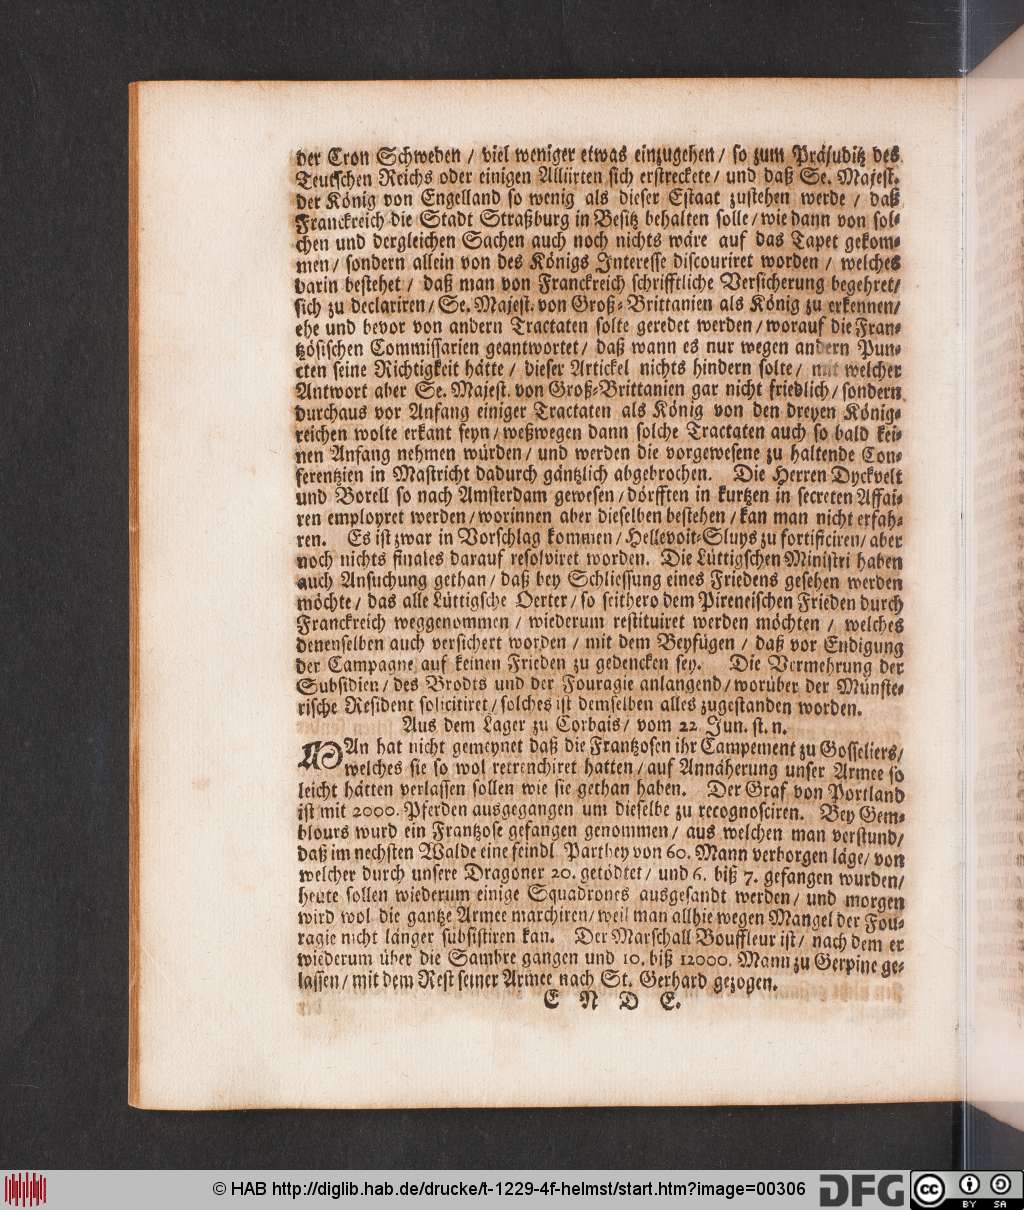 der Cron Schweden / viel weniger etwas einzugehen / so zum Präjuditz des
Teutschen Reichs oder einigen Alliirten sich erstreckete / und daß Se. Majest.
der König von Engelland so wenig als dieser Estaat zustehen werde / daß
Franckreich die Stadt Straßburg in Besitz behalten solle / wie dann von sol-
chen und dergleichen Sachen auch noch nichts wäre auf das Tapet gekom-
men / sondern allein von des Königs Interesse discouriret worden / welches
darin bestehet / daß man von Franckreich schrifftliche Versicherung begehret /
sich zu declariren / Se. Majest. von Groß-Brittanien als König zu erkennen /
ehe und bevor von andern Tractaten solte geredet werden / worauf die Fran-
tzösischen Commissarien geantwortet / daß wann es nur wegen andern Pun-
cten seine Richtigkeit hätte / dieser Artickel nichts hindern solte / mit welcher
Antwort aber Se. Majest. von Groß-Brittanien gar nicht friedlich / sondern
durchaus vor Anfang einiger Tractaten als König von den dreyen König-
reichen wolte erkant seyn / weßwegen dann solche Tractaten auch so bald kei-
nen Anfang nehmen würden / und werden die vorgewesene zu haltende Con-
ferentzien in Mastricht dadurch gäntzlich abgebrochen. Die Herren Dyckvelt
und Borell so nach Amsterdam gewesen / dörfften in kurtzen in secreten Affai-
ren employret werden / worinnen aber dieselben bestehen / kan man nicht erfah-
ren. Es ist zwar in Vorschlag kommen / Hellevoit-Sluys zu fortificiren / aber
noch nichts finales darauf resolviret worden. Die Lüttigschen Ministri haben
auch Ansuchung gethan / daß bey Schliessung eines Friedens gesehen werden
möchte / das alle Lüttigsche Oerter / so seithero dem Pireneischen Frieden durch
Franckreich weggenommen / wiederum restituiret werden möchten / welches
denenselben auch versichert worden / mit dem Beyfügen / daß vor Endigung
der Campagne auf keinen Frieden zu gedencken sey. Die Vermehrung der
Subsidien / des Brodts und der Fouragie anlangend / worüber der Münste-
rische Resident solicitiret / solches ist demselben alles zugestanden worden.
Aus dem Lager zu Corbais / vom 22 Jun. st. n.
MAn hat nicht gemeynet daß die Frantzosen ihr Campement zu Gosseliers /
welches sie so wol retrenchiret hatten / auf Annäherung unser Armee so
leicht hätten verlassen sollen wie sie gethan haben. Der Graf von Portland
ist mit 2000. Pferden ausgegangen um dieselbe zu recognosciren. Bey Gem-
blours wurd ein Frantzose gefangen genommen / aus welchen man verstund /
daß im nechsten Walde eine feindl. Parthey von 60. Mann verborgen läge / von
welcher durch unsere Dragoner 20. getödtet / und 6. biß 7. gefangen wurden /
heute sollen wiederum einige Squadrones ausgesandt werden / und morgen
wird wol die gantze Armee marchiren / weil man allhie wegen Mangel der Fou-
ragie nicht länger subsistiren kan. Der Marschall Bouffleur ist / nach dem er
wiederum über die Sambre gangen und 10. biß 12000. Mann zu Gerpine ge-
lassen / mit dem Rest seiner Armee nach St. Gerhard gezogen.
E N D E.
© HAB http://diglib.hab.de/drucke/t-1229-4f-helmst/start.htm?image=00306
DFG
cc BY SA